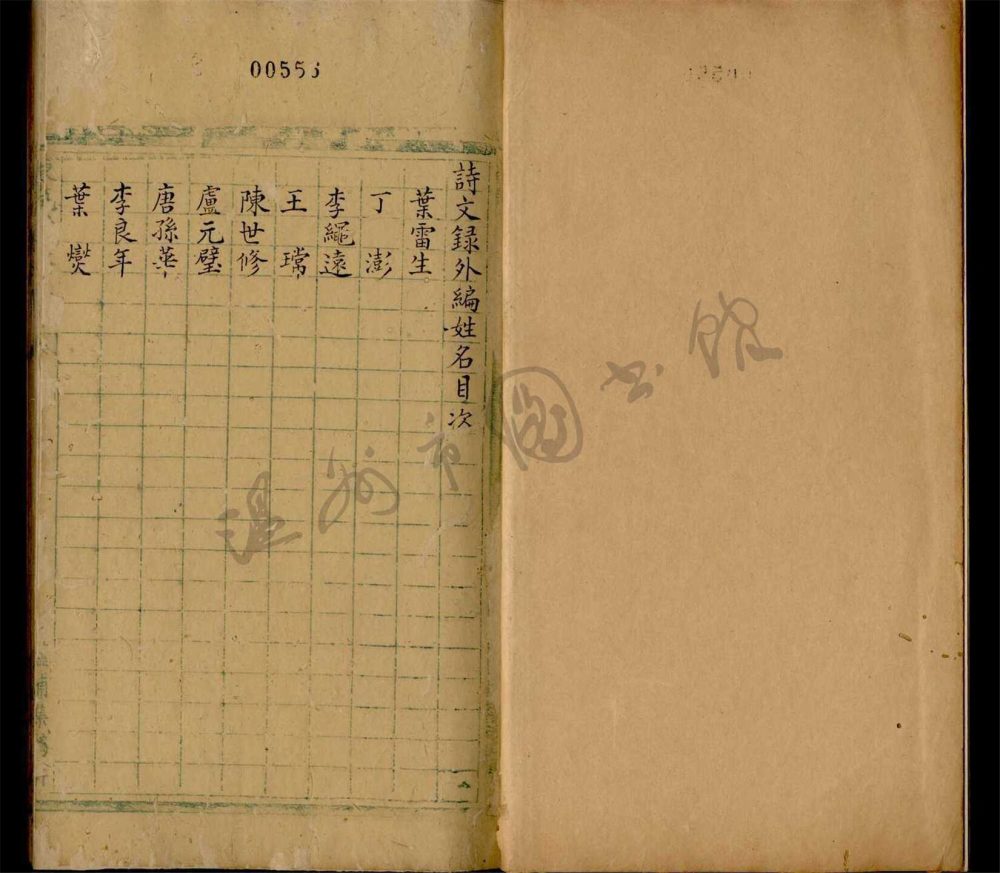 00553
詩文録外編姓名目次
葉雷生
丁澎
李繩遠
王璸
陳世修
盧元璧
唐孫華
李良年
葉燮
温州市圖书館